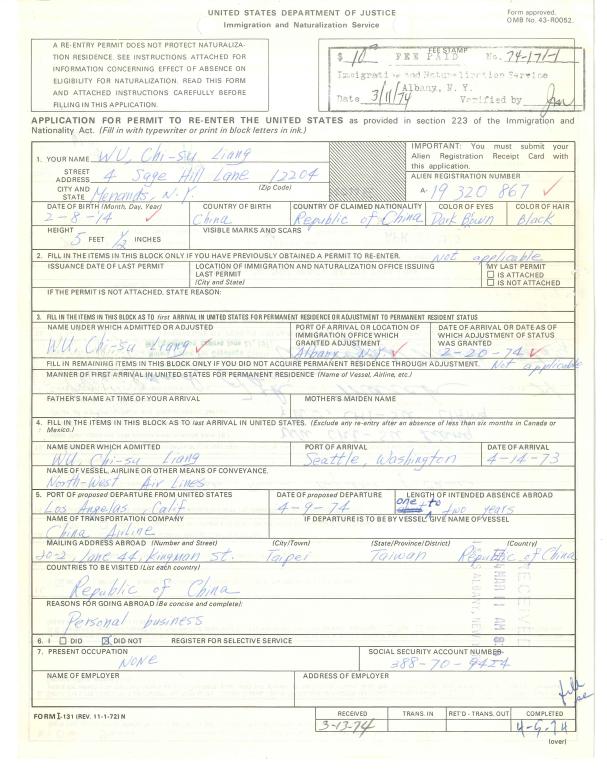 UNITED STATES DEPARTMENT OF JUSTICE
Immigration and Naturalization Service
Form approved.
OMB No. 43-R0052.
A RE-ENTRY PERMIT DOES NOT PROTECT NATURALIZA-
TION RESIDENCE. SEE INSTRUCTIONS ATTACHED FOR
INFORMATION CONCERNING EFFECT OF ABSENCE ON
ELIGIBILITY FOR NATURALIZATION. READ THIS FORM
AND ATTACHED INSTRUCTIONS CAREFULLY BEFORE
FILLING IN THIS APPLICATION.
FEE STAMP
$ 10 FEE PAID No. 74-171-1
Immigration and Naturalization Service
Albany, N. Y.
Date 3/11/74 Verified by
APPLICATION FOR PERMIT TO RE-ENTER THE UNITED STATES as provided in section 223 of the Immigration and
Nationality Act. (Fill in with typewriter or print in block letters in ink.)
1. YOUR NAME WU, Chi-su Liang
STREET ADDRESS 4 Sage Hill Lane 12204
CITY AND STATE Menands, N.Y. (Zip Code)
IMPORTANT: You must submit your
Alien Registration Receipt Card with
this application.
ALIEN REGISTRATION NUMBER
A- 19 320 867
DATE OF BIRTH (Month, Day, Year) COUNTRY OF BIRTH COUNTRY OF CLAIMED NATIONALITY COLOR OF EYES COLOR OF HAIR
2-8-14 China Republic of China Dark Brown Black
HEIGHT VISIBLE MARKS AND SCARS
5 FEET 1/2 INCHES
2. FILL IN THE ITEMS IN THIS BLOCK ONLY IF YOU HAVE PREVIOUSLY OBTAINED A PERMIT TO RE-ENTER. Not applicable
ISSUANCE DATE OF LAST PERMIT LOCATION OF IMMIGRATION AND NATURALIZATION OFFICE ISSUING MY LAST PERMIT
LAST PERMIT IS ATTACHED
(City and State) IS NOT ATTACHED
IF THE PERMIT IS NOT ATTACHED, STATE REASON:
3. FILL IN THE ITEMS IN THIS BLOCK AS TO first ARRIVAL IN UNITED STATES FOR PERMANENT RESIDENCE OR ADJUSTMENT TO PERMANENT RESIDENT STATUS
NAME UNDER WHICH ADMITTED OR ADJUSTED PORT OF ARRIVAL OR LOCATION OF DATE OF ARRIVAL OR DATE AS OF
IMMIGRATION OFFICE WHICH WHICH ADJUSTMENT OF STATUS
GRANTED ADJUSTMENT WAS GRANTED
WU, Chi-su Liang Albany, N.Y. 2-20-74
FILL IN REMAINING ITEMS IN THIS BLOCK ONLY IF YOU DID NOT ACQUIRE PERMANENT RESIDENCE THROUGH ADJUSTMENT. Not applicable
MANNER OF FIRST ARRIVAL IN UNITED STATES FOR PERMANENT RESIDENCE (Name of Vessel, Airline, etc.)
FATHER'S NAME AT TIME OF YOUR ARRIVAL MOTHER'S MAIDEN NAME
4. FILL IN THE ITEMS IN THIS BLOCK AS TO last ARRIVAL IN UNITED STATES. (Exclude any re-entry after an absence of less than six months in Canada or
Mexico.)
NAME UNDER WHICH ADMITTED PORT OF ARRIVAL DATE OF ARRIVAL
WU, Chi-su Liang Seattle, Washington 4-14-73
NAME OF VESSEL, AIRLINE OR OTHER MEANS OF CONVEYANCE.
North-West Air Lines
5. PORT OF proposed DEPARTURE FROM UNITED STATES DATE OF proposed DEPARTURE LENGTH OF INTENDED ABSENCE ABROAD
Los Angelas, Calif 4-9-74 one to two years
NAME OF TRANSPORTATION COMPANY IF DEPARTURE IS TO BE BY VESSEL, GIVE NAME OF VESSEL
China Airline
MAILING ADDRESS ABROAD (Number and Street) (City/Town) (State/Province/District) (Country)
20-2, Lane 44, Kingman St. Taipei Taiwan Republic of China
COUNTRIES TO BE VISITED (List each country)
Republic of China
REASONS FOR GOING ABROAD (Be concise and complete):
Personal business
RECEIVED
6. I DID DID NOT REGISTER FOR SELECTIVE SERVICE
7. PRESENT OCCUPATION SOCIAL SECURITY ACCOUNT NUMBER
NONE
NAME OF EMPLOYER ADDRESS OF EMPLOYER
FORM I-131 (REV. 11-1-72) N
RECEIVED TRANS. IN RET'D - TRANS. OUT COMPLETED
3-13-74 4-5-74
(over)